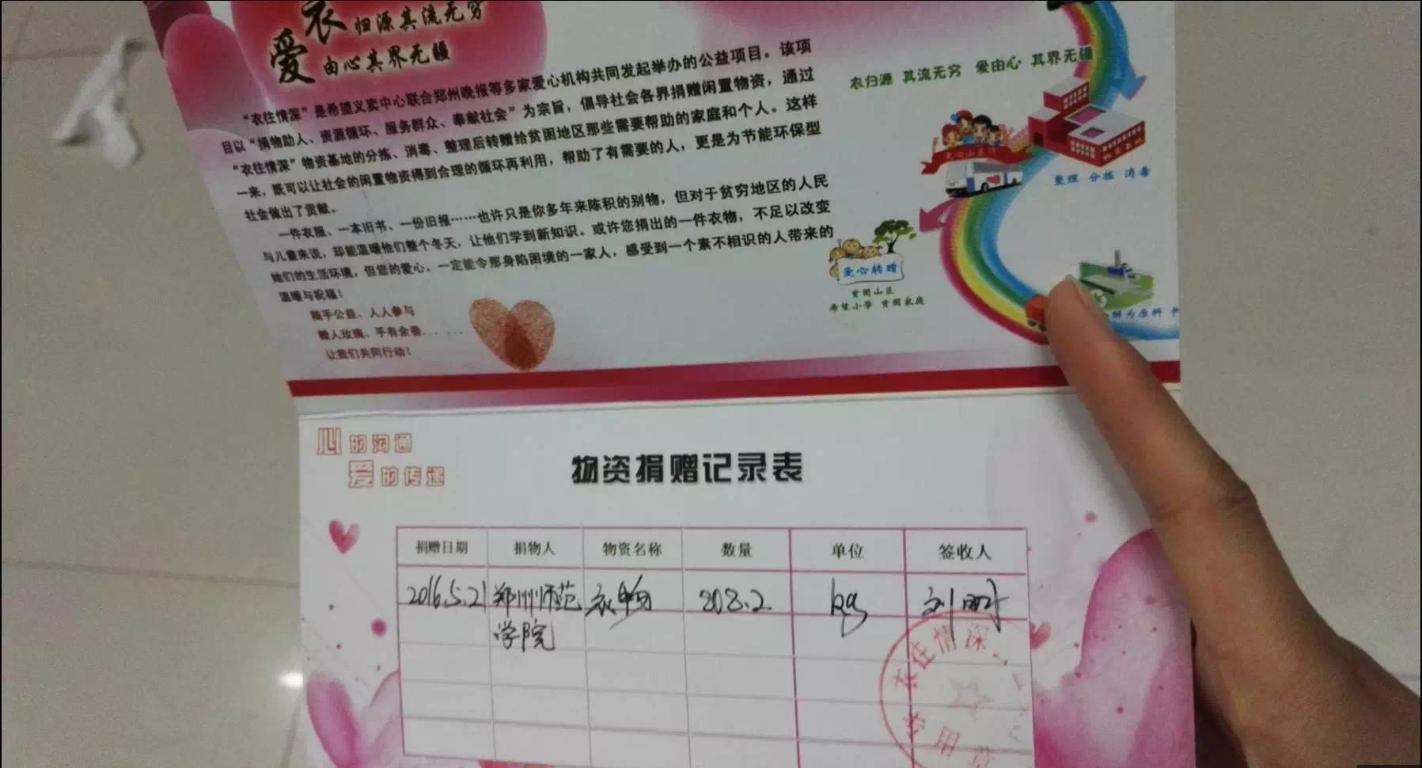 衣归源其流无穷
爱由心其界无疆
“衣往情深”是希望义卖中心联合郑州晚报等多家爱心机构共同发起举办的公益项目。该项
目以“捐物助人、资源循环、服务群众、奉献社会”为宗旨，倡导社会各界捐赠闲置物资，通过
“衣往情深”物资基地的分拣、消毒、整理后转赠给贫困地区那些需要帮助的家庭和个人。这样
一来，既可以让社会的闲置物资得到合理的循环再利用，帮助了有需要的人，更是为节能环保型
社会做出了贡献。
一件衣服、一本旧书、一份旧报……也许只是你多年来陈积的别物，但对于贫穷地区的人民
与儿童来说，却能温暖他们整个冬天，让他们学到新知识。或许您捐出的一件衣物，不足以改变
她们的生活环境，但您的爱心，一定能令那身陷困境的一家人，感受到一个素不相识的人带来的
温暖与祝福！
随手公益、人人参与
赠人玫瑰、手有余香... ... ...
让我们共同行动！
衣归源 其流无穷 爱由心 其界无疆
整理 分拣 消毒
爱心转赠
贫困山区
希望小学 贫困家庭
解为原料
心的沟通
爱的传递
物资捐赠记录表
捐赠日期 捐物人 物资名称 数量 单位 签收人
2016.5.21 郑州师范 衣物 208.2 kg
学院
衣往情深
专用章